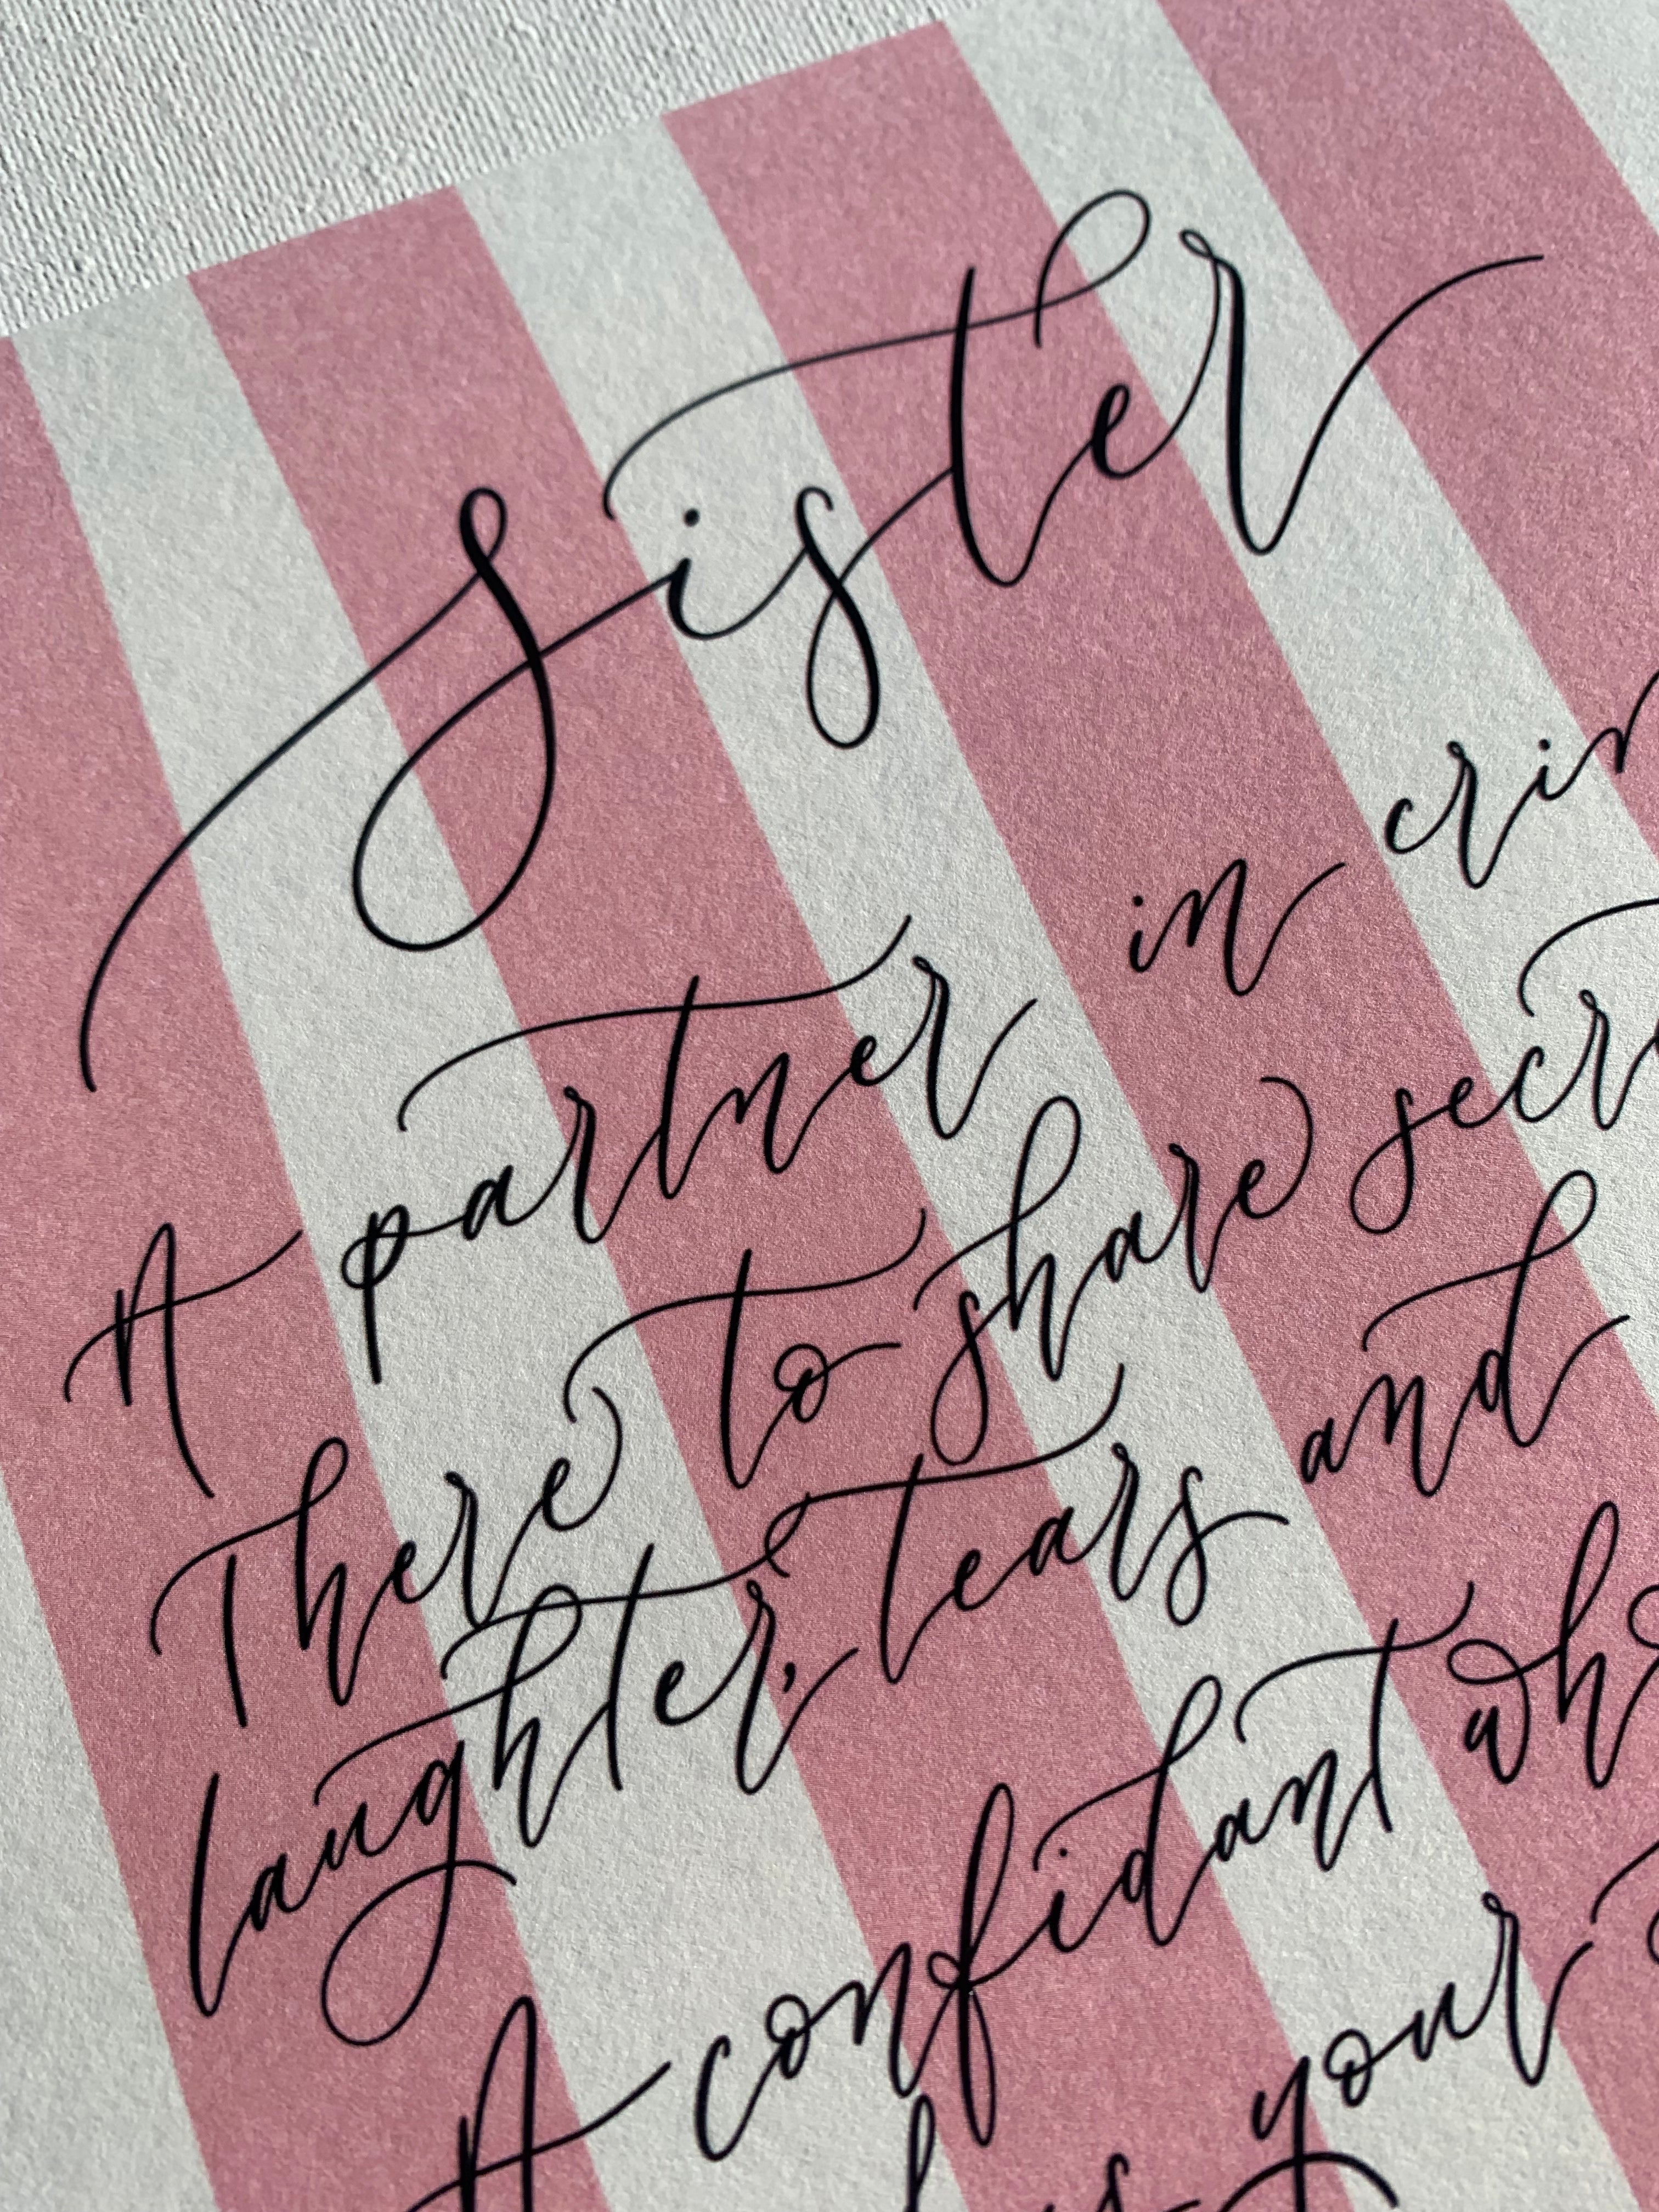 Sister
A partner in crim
There to share secre
laughter, tears and
A confidant wh
your